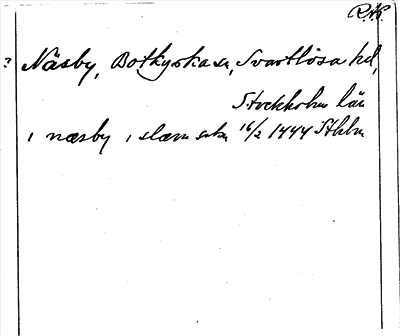 RAP.
? Näsby, Botkyrka sn, Svartlösa hd,
Stockholms län
i næsby i slem sokn 16/2 1444 Sthlm